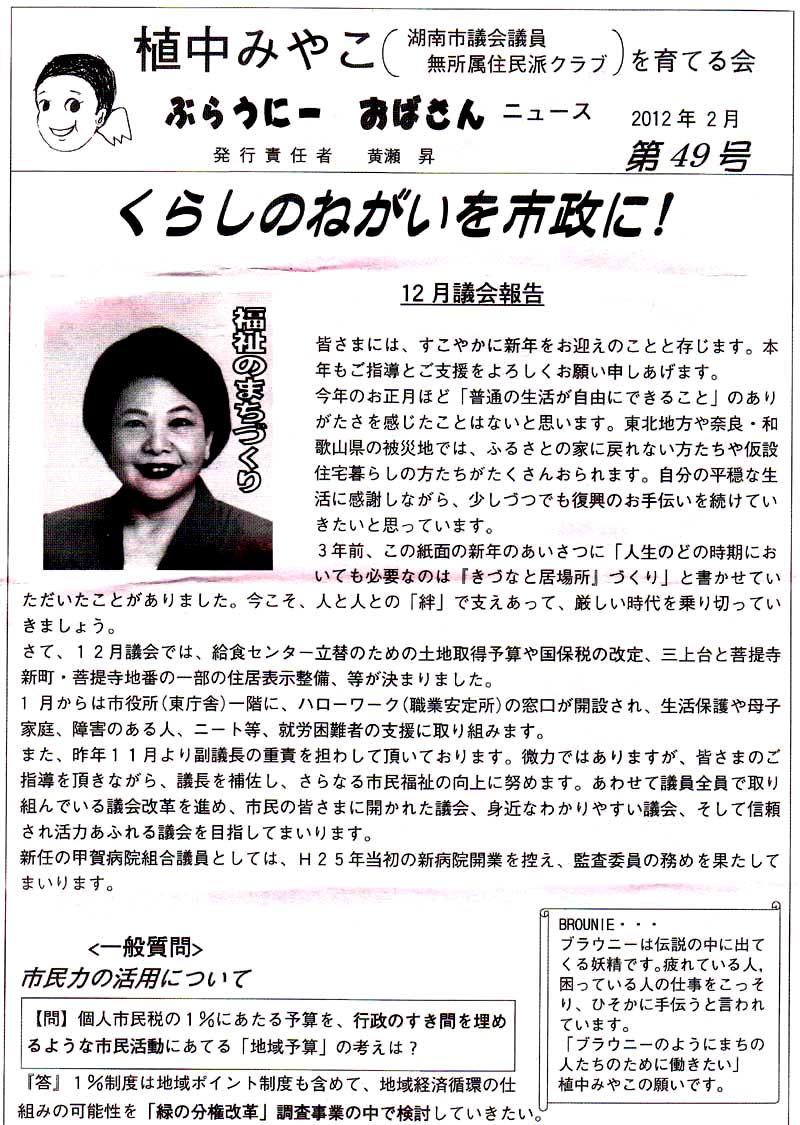 植中みやこ(湖南市議会議員 無所属住民派クラブ)を育てる会
ぶらうにー おばさん ニュース 2012年 2月
発行責任者 黄瀬 昇 第49号
くらしのねがいを市政に!
12月議会報告
福祉のまちづくり
皆さまには、すこやかに新年をお迎えのことと存じます。本
年もご指導とご支援をよろしくお願い申しあげます。
今年のお正月ほど「普通の生活が自由にできること」のあり
がたさを感じたことはないと思います。東北地方や奈良・和
歌山県の被災地では、ふるさとの家に戻れない方たちや仮設
住宅暮らしの方たちがたくさんおられます。自分の平穏な生
活に感謝しながら、少しづつでも復興のお手伝いを続けてい
きたいと思っています。
3年前、この紙面の新年のあいさつに「人生のどの時期にお
いても必要なのは『きづなと居場所』づくり」と書かせてい
ただいたことがありました。今こそ、人と人との「絆」で支えあって、厳しい時代を乗り切ってい
きましょう。
さて、12月議会では、給食センター立替のための土地取得予算や国保税の改定、三上台と菩提寺
新町・菩提寺地番の一部の住居表示整備、等が決まりました。
1月からは市役所(東庁舎)一階に、ハローワーク(職業安定所)の窓口が開設され、生活保護や母子
家庭、障害のある人、ニート等、就労困難者の支援に取り組みます。
また、昨年11月より副議長の重責を担わして頂いております。微力ではありますが、皆さまのご
指導を頂きながら、議長を補佐し、さらなる市民福祉の向上に努めます。あわせて議員全員で取り
組んでいる議会改革を進め、市民の皆さまに開かれた議会、身近なわかりやすい議会、そして信頼
され活力あふれる議会を目指してまいります。
新任の甲賀病院組合議員としては、H25年当初の新病院開業を控え、監査委員の務めを果たして
まいります。
<一般質問>
市民力の活用について
【問】個人市民税の1%にあたる予算を、行政のすき間を埋め
るような市民活動にあてる「地域予算」の考えは?
『答』1%制度は地域ポイント制度も含めて、地域経済循環の仕
組みの可能性を「緑の分権改革」調査事業の中で検討していきたい。
BROUNIE・・・
ブラウニーは伝説の中に出て
くる妖精です。疲れている人,
困っている人の仕事をこっそ
り、ひそかに手伝うと言われ
ています。
「ブラウニーのようにまちの
人たちのために働きたい」
植中みやこの願いです。